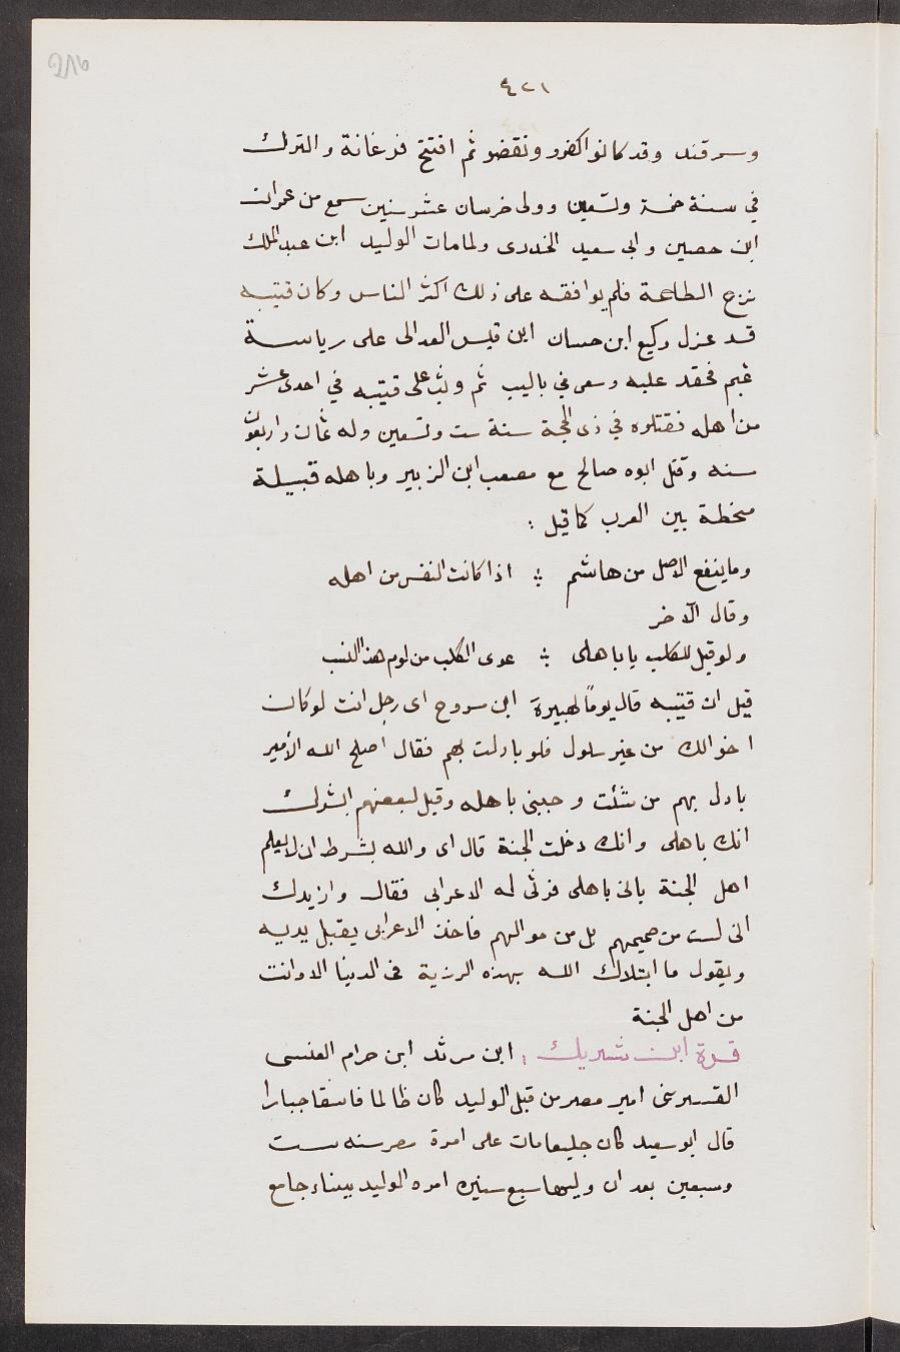 ٤٢١
وسمرقند وقد كانوا كفرو ونقضو ثم افتتح فرغانة والترك
في سنة خمسة وتسعين وولى خرسان عشر سنين سمع من عمران
ابن حصين وابى سعيد الخدرى ولما مات الوليد ابن عبد الملك
نزع الطاعة فلم يوافقه على ذلك اكثر الناس وكان قتيبه
قد عزل وكيع ابن حسان ابن قيس العدالى على رياسة
تميم فحقد عليه وسعى في باليب ثم وثب على قتيبه في احدى عشر
من اهله فقتلوه في ذى الحجة سنة ست وتسعين وله ثمان واربعون
سنه وقتل ابوه صالح مع مصعب ابن الزبير وباهله قبيلة
منحطة بين العرب كما قيل :
وما ينفع الاصل من هاشم ؛ اذا كانت النفس من اهله
وقال الآخر
ولو قيل للكلب يا باهلى ؛ عوى الكلب من لوم هذا النسب
قيل ان قتيبه قال يوماً لهبيرة ابن مسروح اى رجل انت لو كان
اخوالك من غير سلول فلو بادلت بهم فقال اصلح الله الأمير
بادل بهم من شئت وجبنى باهله وقيل لبعضهم ايشرك
انك باهلى وانك دخلت الجنة قال اى والله بشرط ان لا يعلم
اهل الجنة بانى باهلى فرثى له الاعرابى فقال وازيدك
انى لست من صميمهم بل من مواليهم فاخذ الاعرابى يقبل يديه
ويقول ما ابتلاك الله بهذه الرزية فى الدنيا الا وانت
من اهل الجنة
قرة ابن شريك : ابن مرثد ابن حرام العنسى
القسرينى امير مصر من قبل الوليد كان ظالما فاسقا جبارا
قال ابو سعيد كان خليعا مات على امرة مصر سنه ست
وسبعين بعد ان وليها سبع سنين امره الوليد ببناء جامع